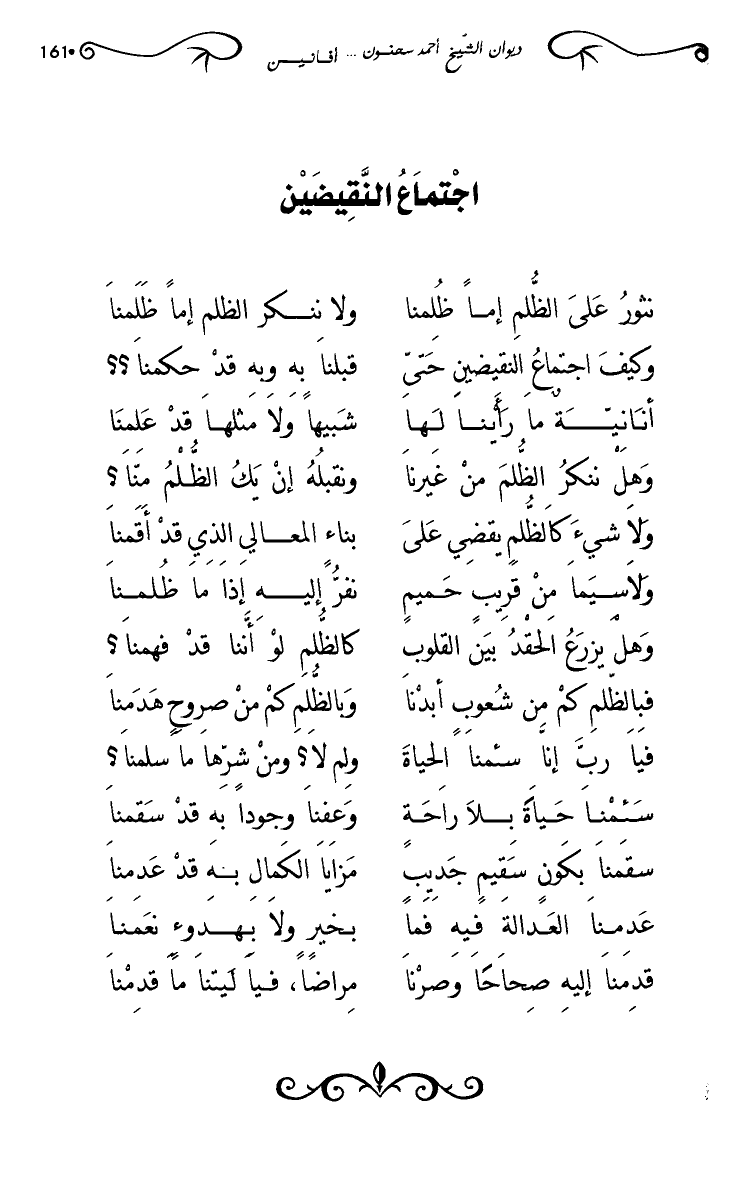 ديوان الشّيخ أحمد سحنون ... أفانيــن 161
اجْتماَعُ النَّقِيضَيْن
نثورُ عَلىَ الظُّلمِ إمــاً ظُلِمنا ولا ننــكر الظلم إماً ظَلَمناَ
وكيفَ اجتماعُ النقيضينِ حَتىّ قبلناَ بهِ وبهِ قدْ حكمنا؟؟
أنَانيّــــةٌ ماَ رَأَينــاَ لَـهاَ شبَيهاً ولاَ مثلهـاَ قدْ عَلمنَا
وَهلْ ننكرُ الظُّلمَ منْ غَيرناَ ونقبلُهُ إنْ يَكُ الظُّـلْمُ منّاَ؟
وَلاَ شيءَ كَالظُّلمِ يقضيِ عَلىَ بناء المعــالي الذيِ قدْ أَقمناَ
وَلاَسـِيَما منْ قرَيبٍ حَـميمٍ نفرُّ إليـــهِ إذَا ماَ ظُـلمـناَ
وَهلْ يزرَعُ الحقدُ بيَن القلوبِ كالظُّلمِ لوْ أَنَّنا قدْ فهمناَ؟
فبالظّلمِ كمْ منِ شُعوبٍ أبدْنَا وَبالظُّلمِ كمْ منْ صروحٍ هَدَمناَ
فياَ ربَّ إناَّ سـئمناَ الحياةَ ولم لاَ؟ ومنْ شرّهاَ ماَ سلمناَ؟
سَئمْنـاَ حَـياةً بــلاَ راحَـة وَعفناَ وجوداً بهِ قدْ سَقمناَ
سقمناَ بكونٍ سَقيمٍ جَديبٍ مَزاياَ الكمالِ بـهِ قدْ عَدمناَ
عَدمـناَ العَـدالةَ فيهِ فماَ بـخيرٍ ولاَ بـهـدوءٍ نعَمنـاَ
قدِمناَ إليهِ صِحاحًا وصرْناَ مراضاً، فـياَ لَيتناَ ماَ قدمْناَ